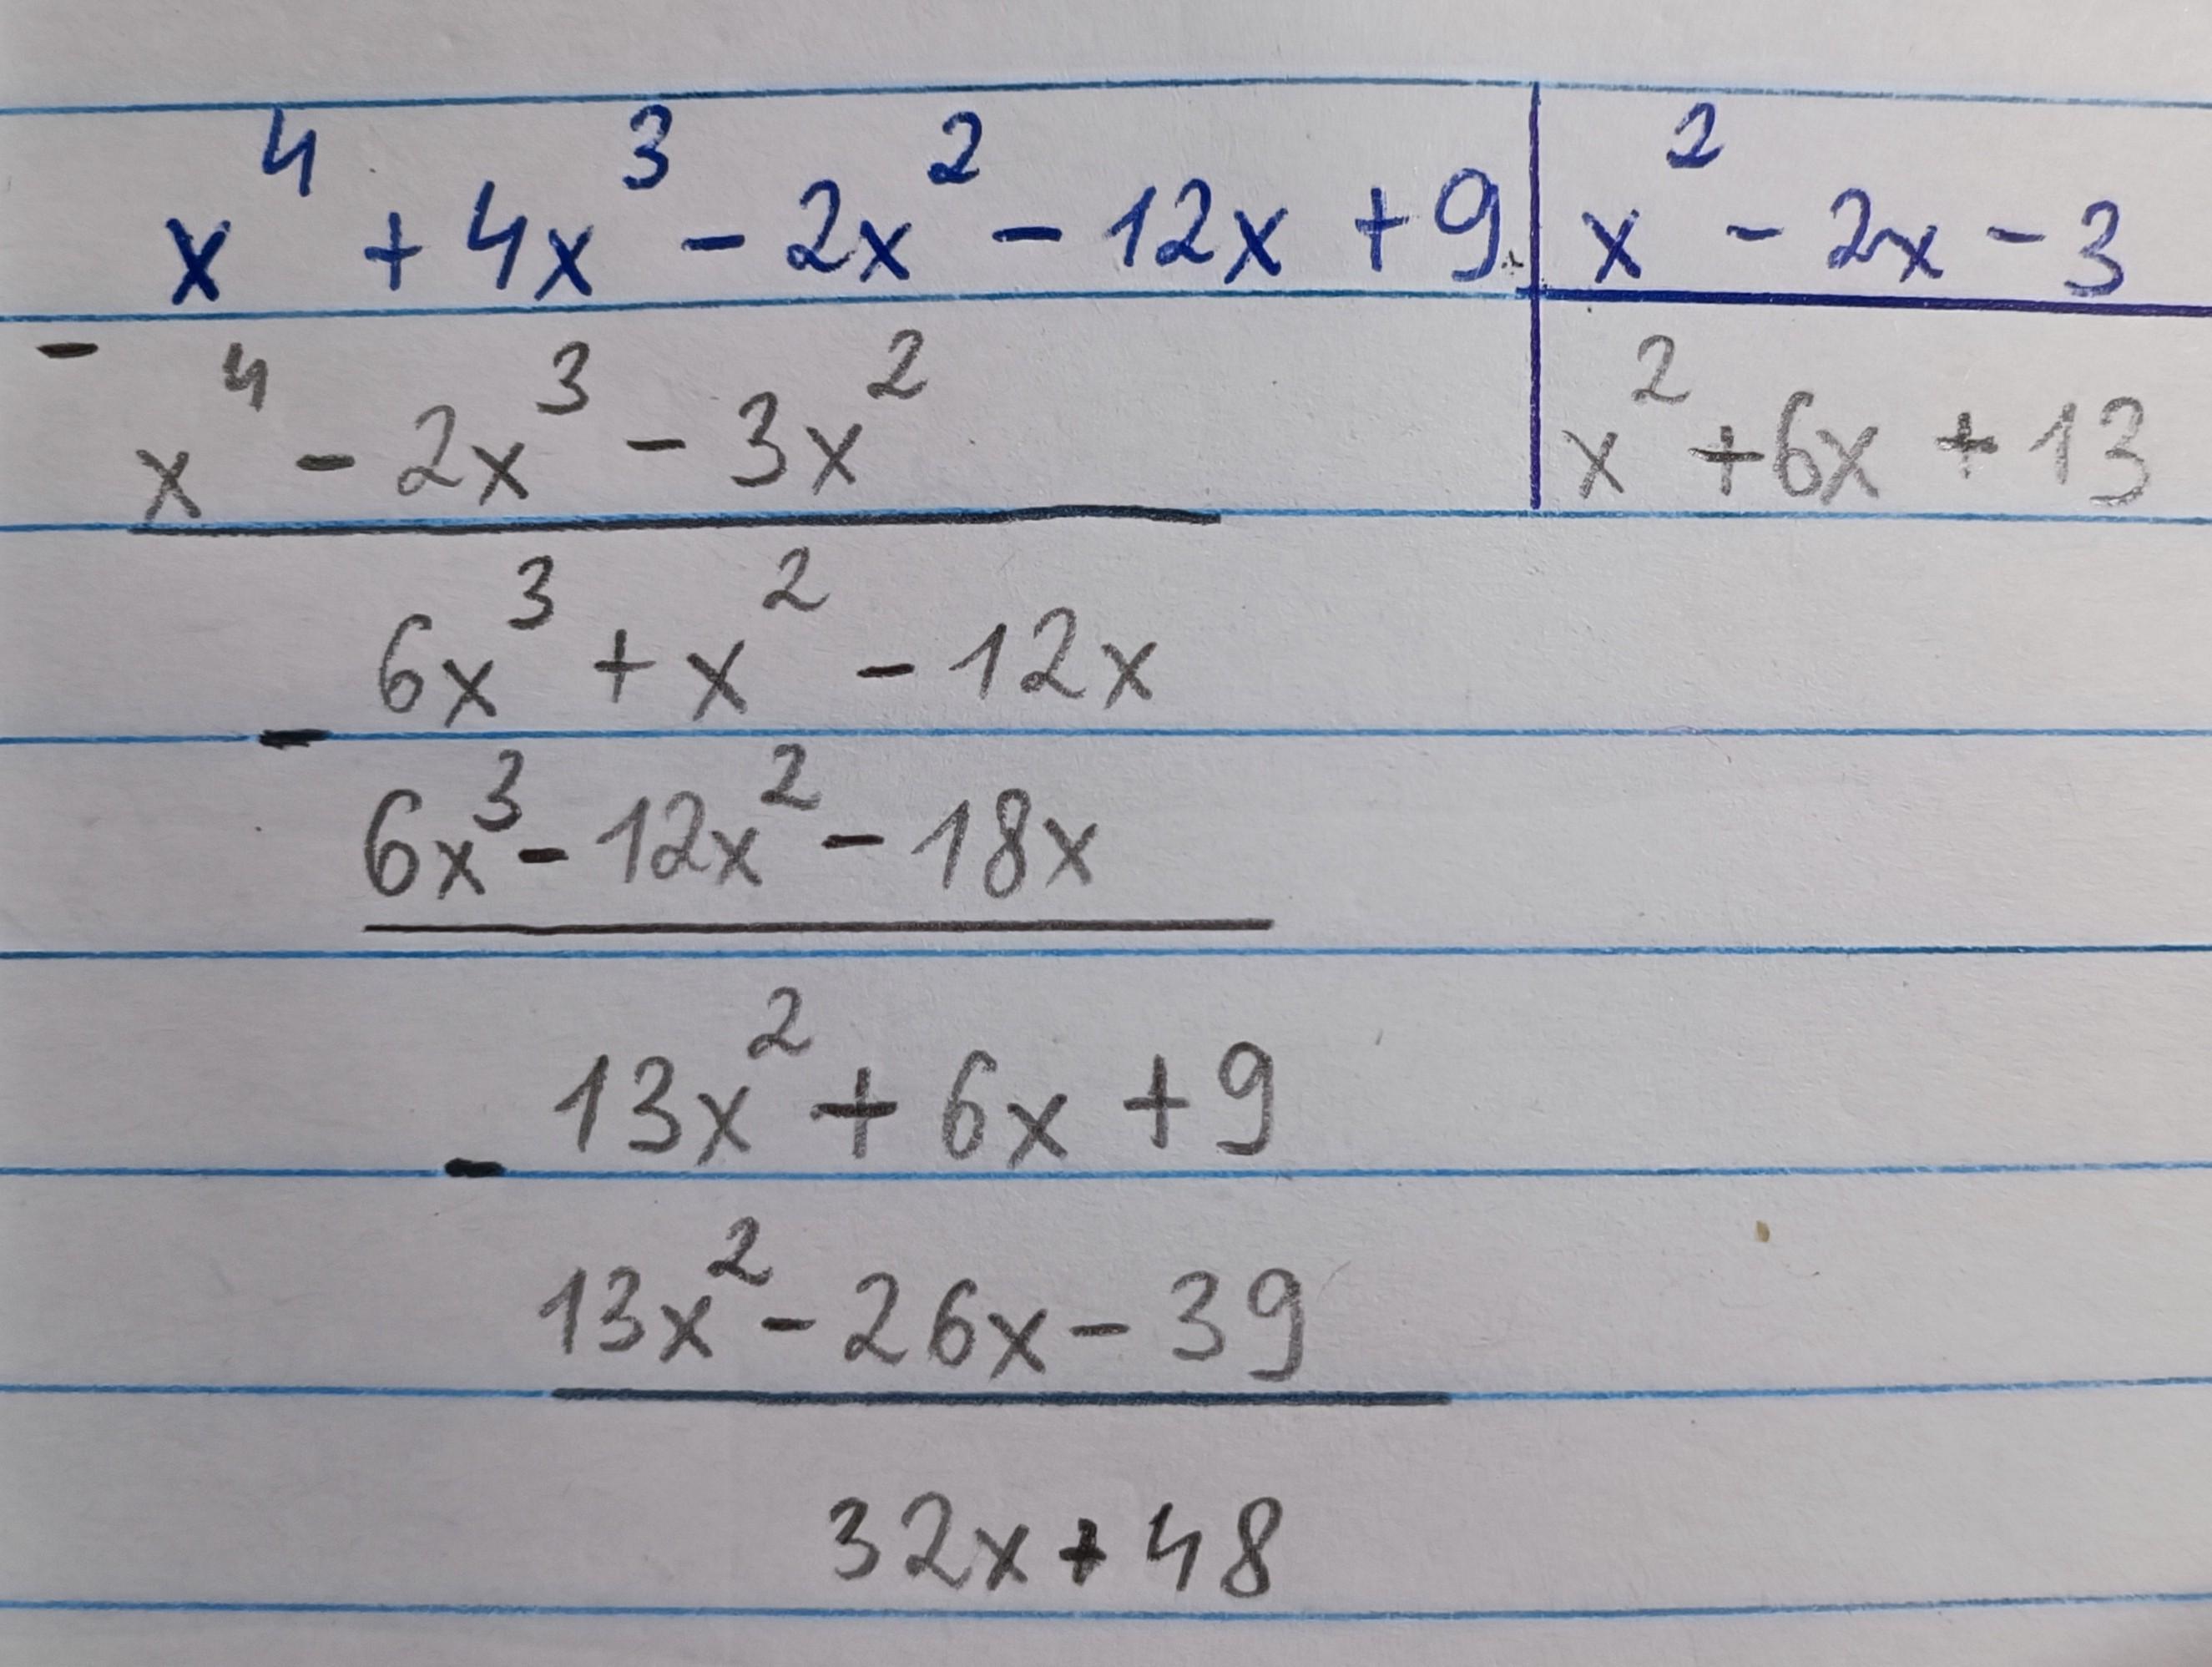 x⁴ + 4x³ - 2x² - 12x + 9 | x² - 2x - 3
- x⁴ - 2x³ - 3x² | x² + 6x + 13
6x³ + x² - 12x
- 6x³ - 12x² - 18x
13x² + 6x + 9
- 13x² - 26x - 39
32x + 48